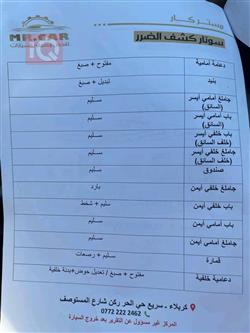 مستر كار
MR.CAR
سونار كشف الضرر
دعامية امامية	مفتوح + صبغ
بنيد	تبديل + صبغ
جاملغ أمامي أيسر (السائق)	سليم
باب أمامي أيسر (السائق)	سليم
باب خلفي أيسر (خلف السائق)	سليم
جاملغ خلفي أيسر (خلف السائق)	سليم
صندوق	سليم
جاملغ خلفي أيمن	بارد
باب خلفي أيمن	سليم + شخط
باب أمامي أيمن	سليم
جاملغ أمامي أيمن	سليم
قمارة	سليم + رصعات
دعامية خلفية	مفتوح + صبغ / تعديل حوض+بدنة خلفية
كربلاء - سريع حي الحر ركن شارع المستوصف
0772 222 2462
المركز غير مسؤول عن التقرير بعد خروج السيارة